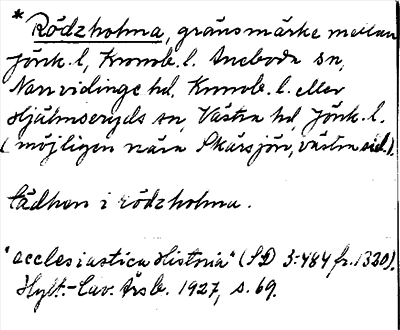 * Rödzholma, gränsmärke mellan
Jönk. l, Kronob. l. Aneboda sn,
Norrvidinge hd, Kronob. l. eller
Hjälmseryds sn, Västra hd, Jönk. l.
(möjligen nära Skärsjön, västra sid.).
lädhen i rödzholma.
"ecclesiastica Historia" (SD 3:484 fr. 1320).
Hylt.-Cav. Årsb. 1927, s. 69.